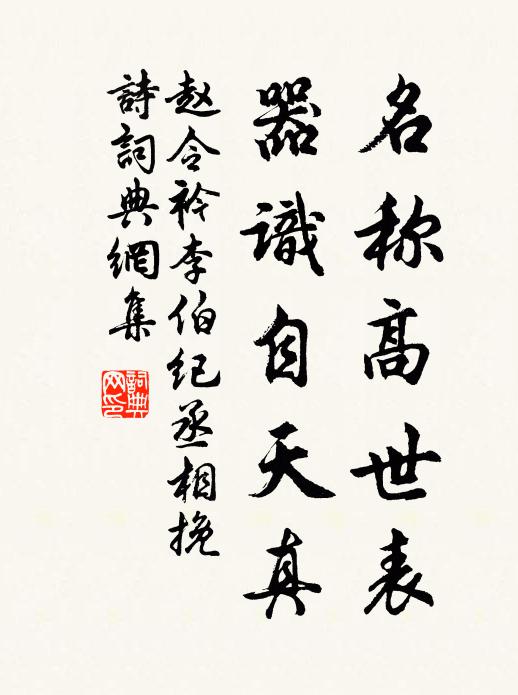 名称高世表
器識自天真
赵令衿李伯纪丞相挽
詩詞典網集
詞典網印